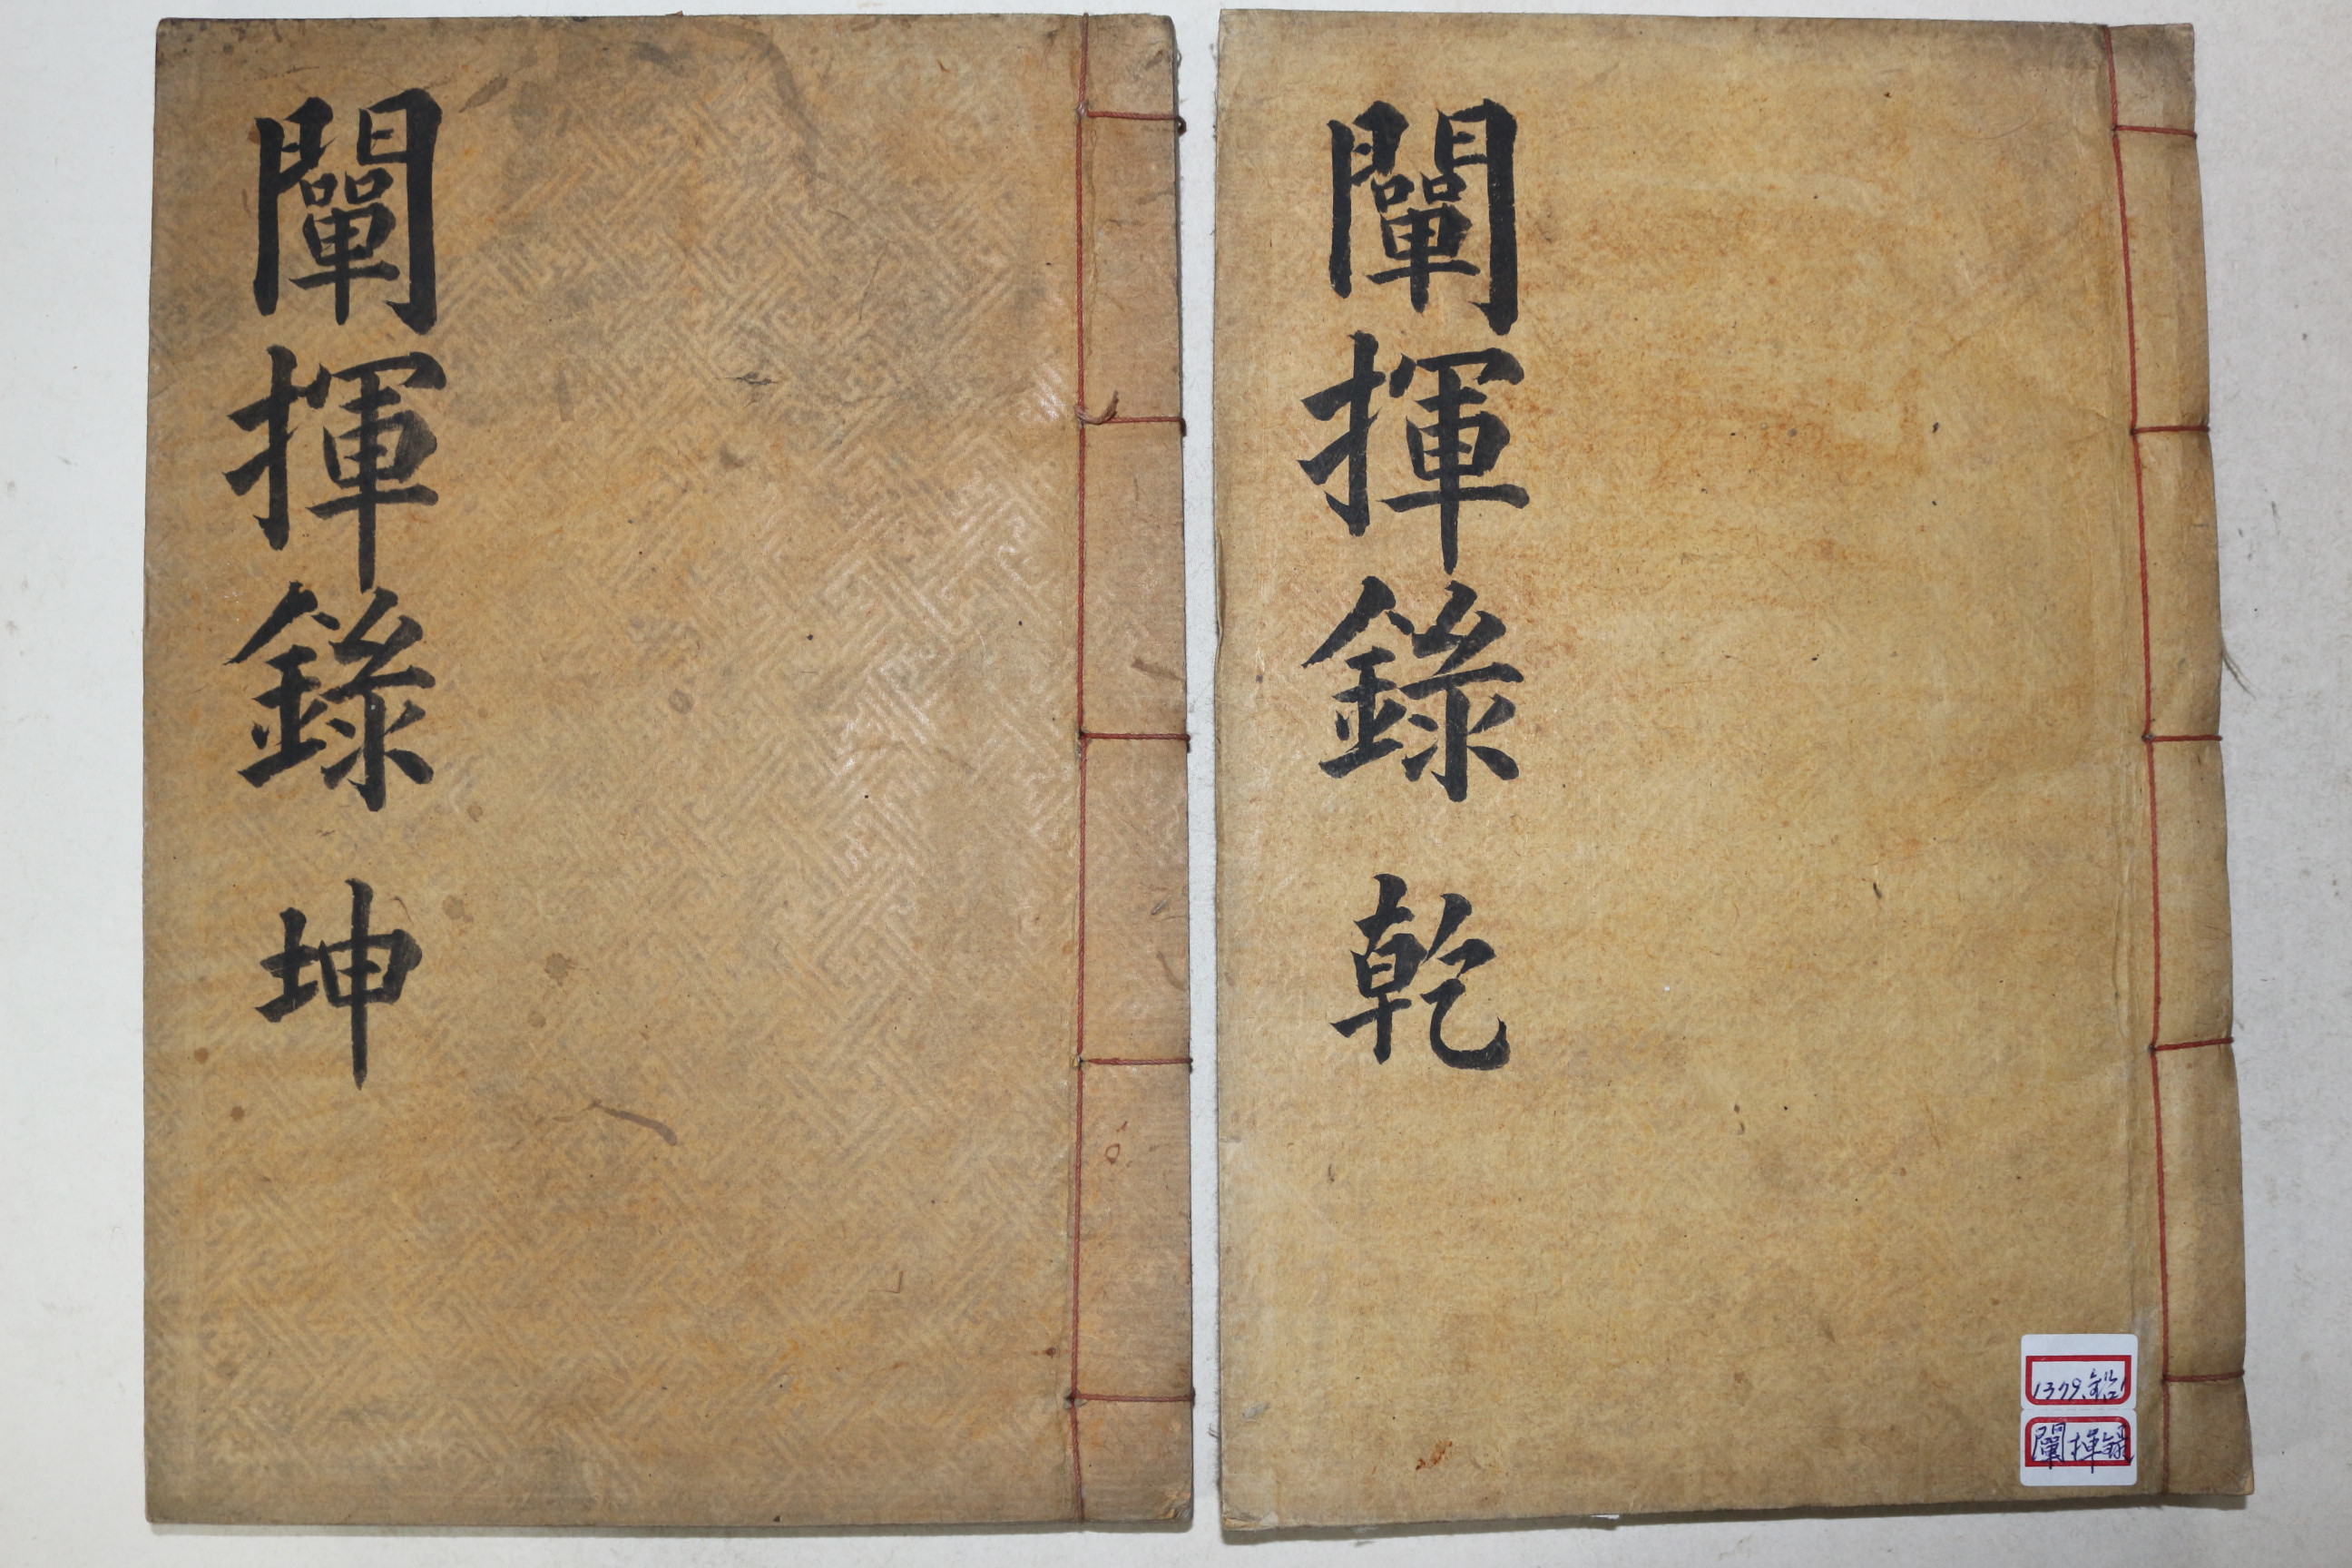 闡揮錄 乾
闡揮錄 坤
1379.鉛
闡揮錄